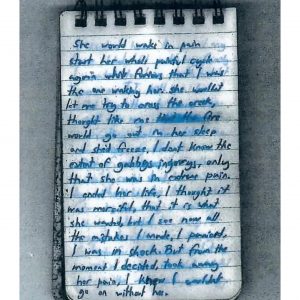 She would wake in pain and
start her whole painful cycle
again while furious that I was
the one waking her. She wouldn't
let me try to cross the creek,
thought like me that the fire
would go out in her sleep
and she'd freeze. I dont know the
extent of gabbys injurys, only
that she was in extreme pain.
I ended her life, I thought it
was merciful, that it is what
she wanted, but I see now all
the mistakes I made. I panicked,
I was in shock. But from the
moment I decided, took away
her pain, I knew I wouldnt
go on without her.